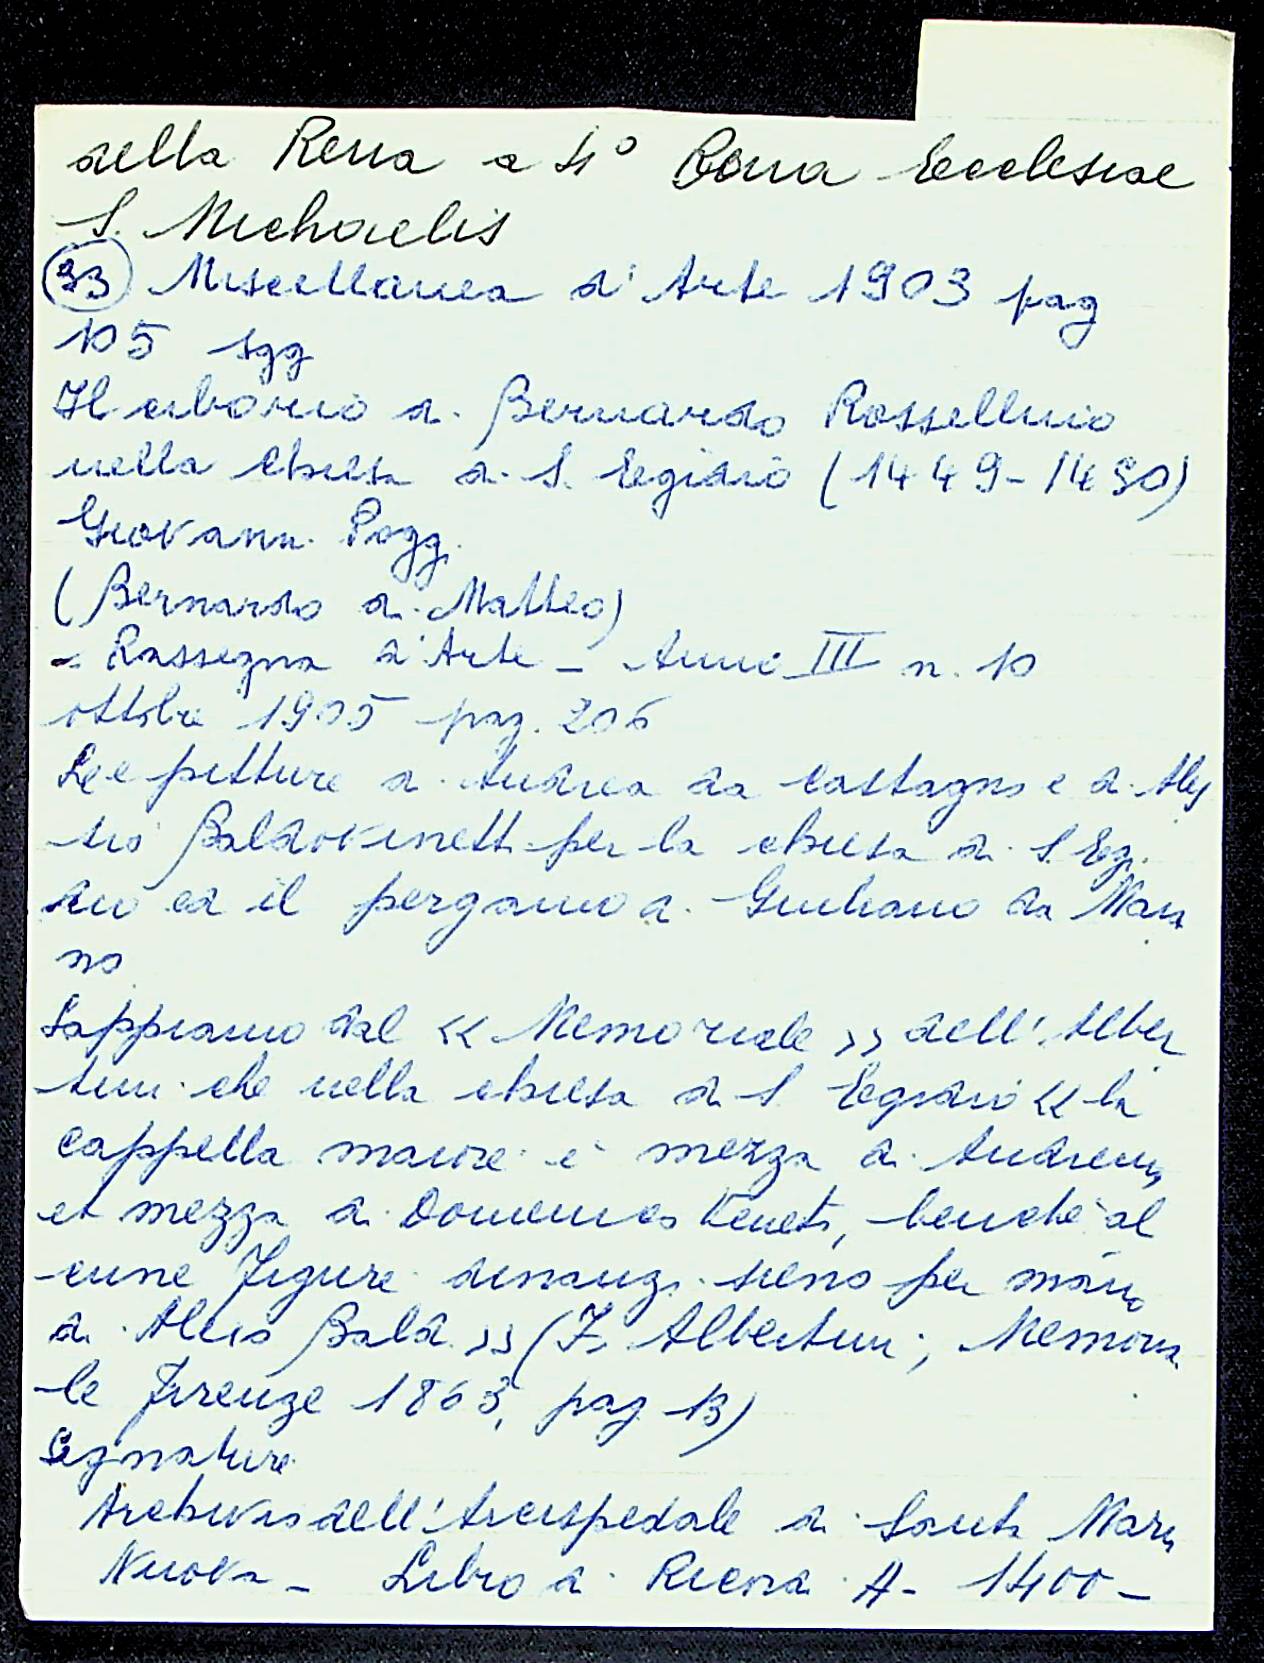 della Rena a 4° Bona Ecclesiae
S. Michaelis
33 Miscellanea d'Arte 1903 pag
105 sgg
Il ciborio di Bernardo Rossellino
nella chiesa di S. Egidio (1449-1450)
Giovanni Poggi
(Bernardo di Matteo)
- Rassegna d'Arte - Anno III n. 10
ottobre 1905 pag. 206
Le pitture di Andrea da Castagno e di Ales
sio Baldovinetti per la chiesa di S. Egi
dio ed il pergamo di Giuliano da Maia
no
Sappiamo dal << Memoriale >> dell'Alber
tini che nella chiesa di S. Egidio << la
cappella maiore è mezza di Andreino
et mezza di Domenico Veneto, benché al
cune figure dinanzi sieno per mano
di Alexo Bald. >> (F. Albertini, Memoria
le Firenze 1863, pag. 13)
Segnature
Archivio dell'Arcispedale di Santa Maria
Nuova - Libro di Ricna A - 1400 -